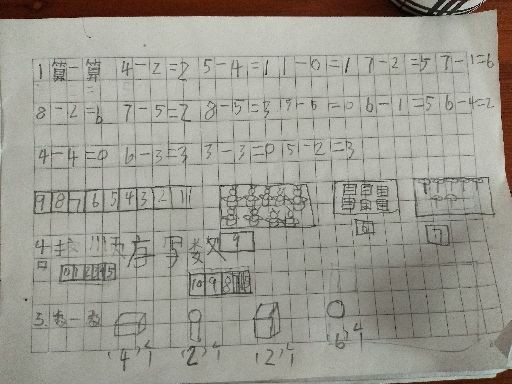 1 算一算 4-2=2 5-4=1 1-0=1 7-2=5 7-1=6
8-2=6 7-5=2 8-5=3 5-5=0 6-1=5 6-4=2
4-4=0 6-3=3 3-3=0 5-2=3
9 8 7 6 5 4 3 2 1
9 6 7
4 按顺序写数
10 9 8
3. 数一数
(4)个 (2)个 (2)个 (6)个